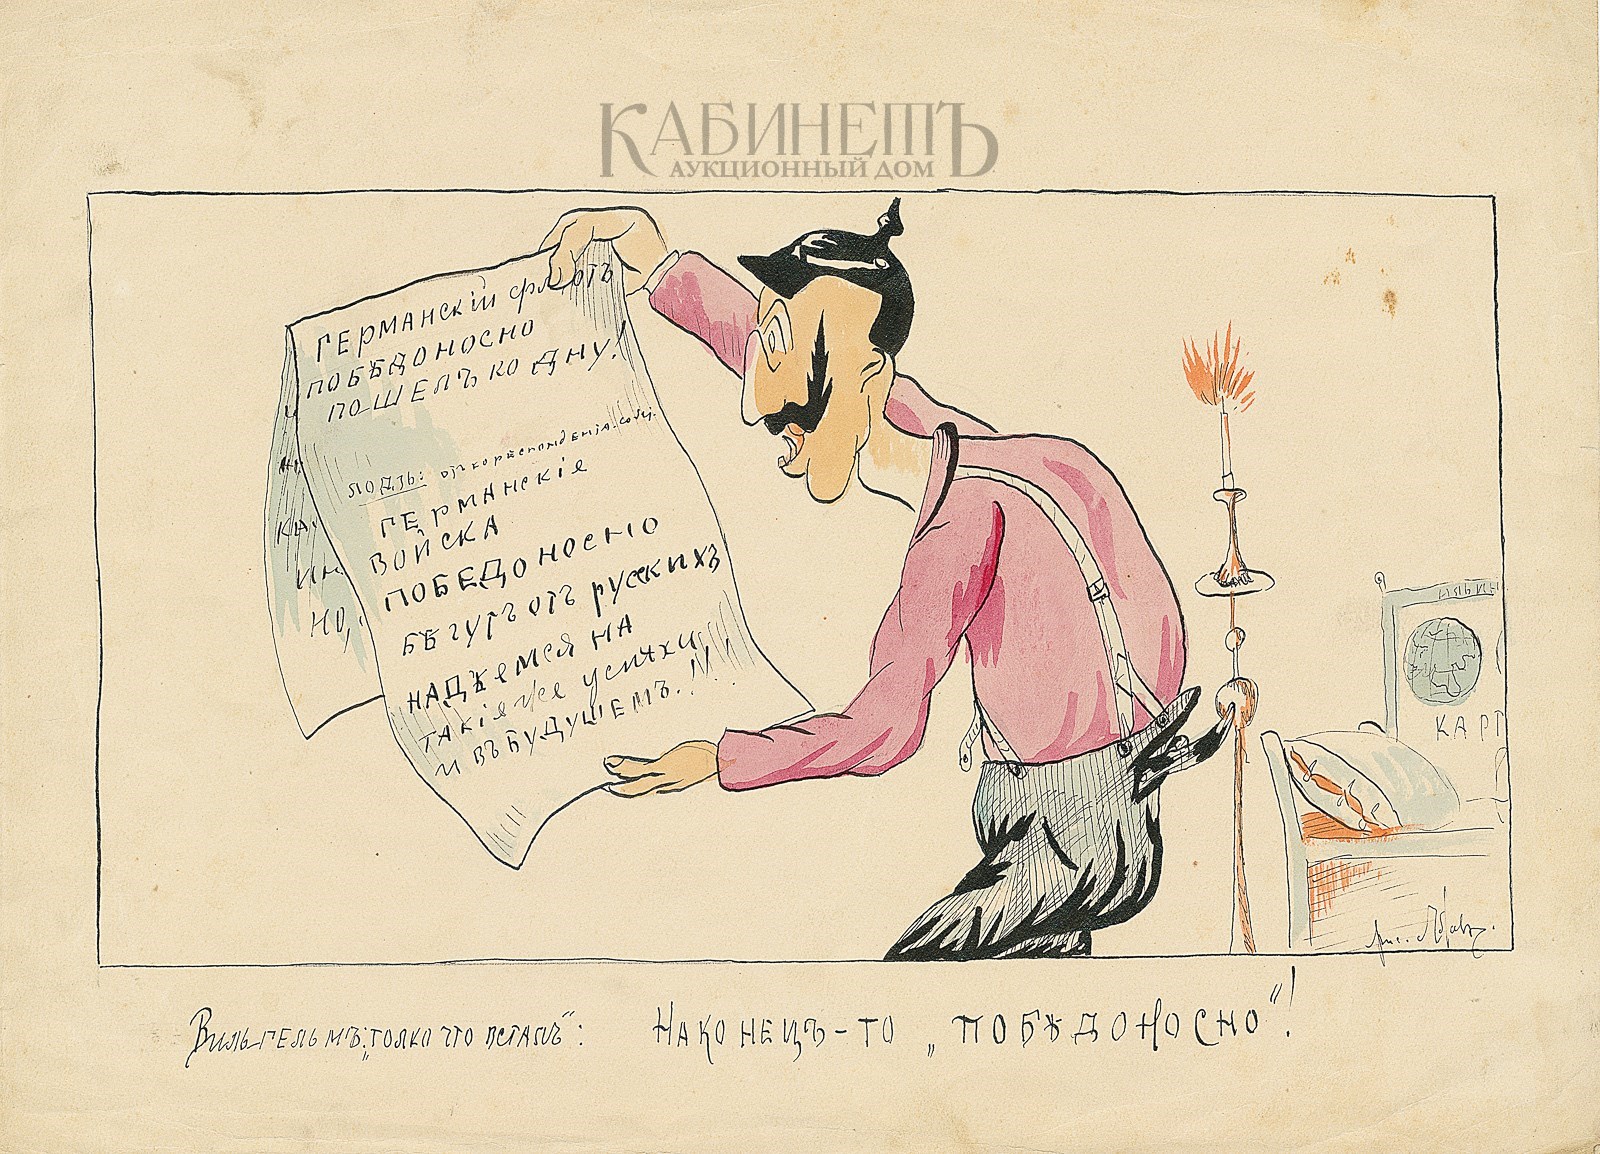 КАБИНЕТЪ
АУКЦИОННЫЙ ДОМ
ГЕРМАНСКІЙ ФЛОТЪ
ПОБѢДОНОСНО
ПОШЕЛЪ КО ДНУ!
ЛОДЗЬ: ОТЪ КОРЕСПОНДЕНТА
ГЕРМАНСКІЯ
ВОЙСКА
ПОБЕДОНОСНО
БѢГУТЪ ОТЪ РУССКИХЪ
НАДѢЕМСЯ НА
ТАКІЯ ЖЕ УСПѢХИ
И ВЪ БУДУЩЕМЪ.!!!
КА
ИН
НО,
КАРТ
рис.
Вильгельмъ: „только что всталъ“: Наконецъ-то „побѣдоносно“!